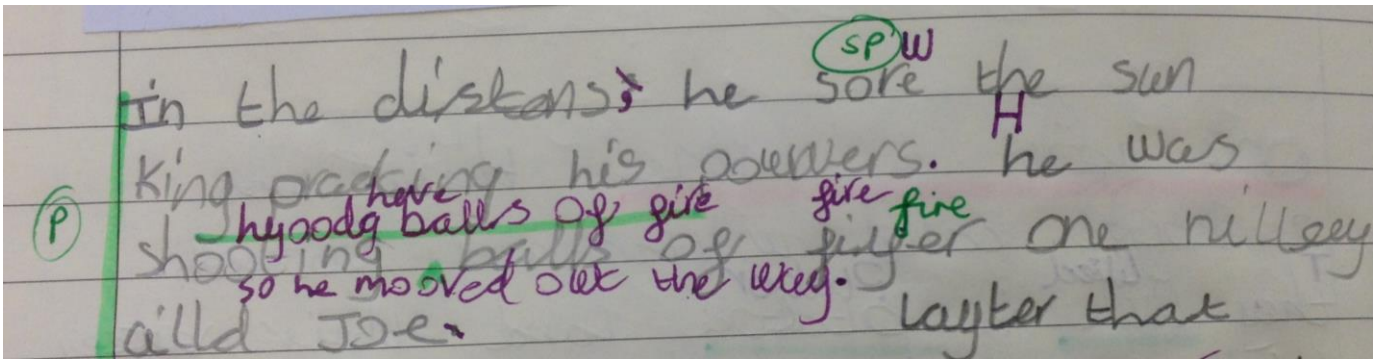 sp w
In the distans, he sore the sun
H
King practing his pouwers. he was
have fire fire
P hyoodg balls of fire
shooting balls of fiyer one nilleey
so he mooved out the way.
cilld Joe. Layter that